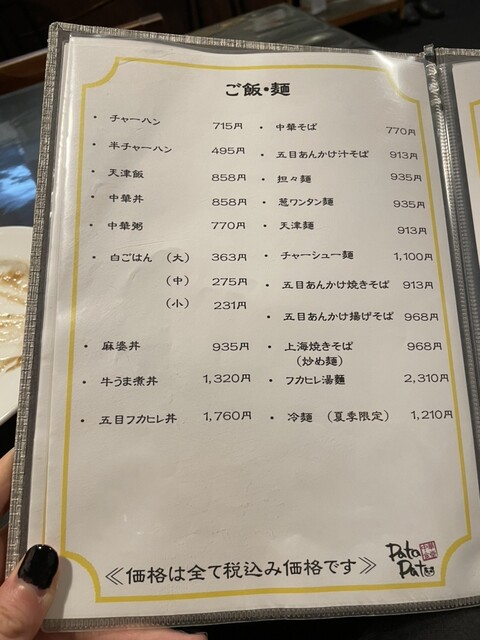 ご飯・麺
・ チャーハン 715円
・ 半チャーハン 495円
・ 天津飯 858円
・ 中華丼 858円
・ 中華粥 770円
・ 白ごはん (大) 363円
(中) 275円
(小) 231円
・ 麻婆丼 935円
・ 牛うま煮丼 1,320円
・ 五目フカヒレ丼 1,760円
・ 中華そば 770円
・ 五目あんかけ汁そば 913円
・ 担々麺 935円
・ 葱ワンタン麺 935円
・ 天津麺 913円
・ チャーシュー麺 1,100円
・ 五目あんかけ焼きそば 913円
・ 五目あんかけ揚げそば 968円
・ 上海焼きそば 968円
(炒め麺)
・ フカヒレ湯麺 2,310円
・ 冷麺 (夏季限定) 1,210円
≪価格は全て税込み価格です≫
Pata
Pata